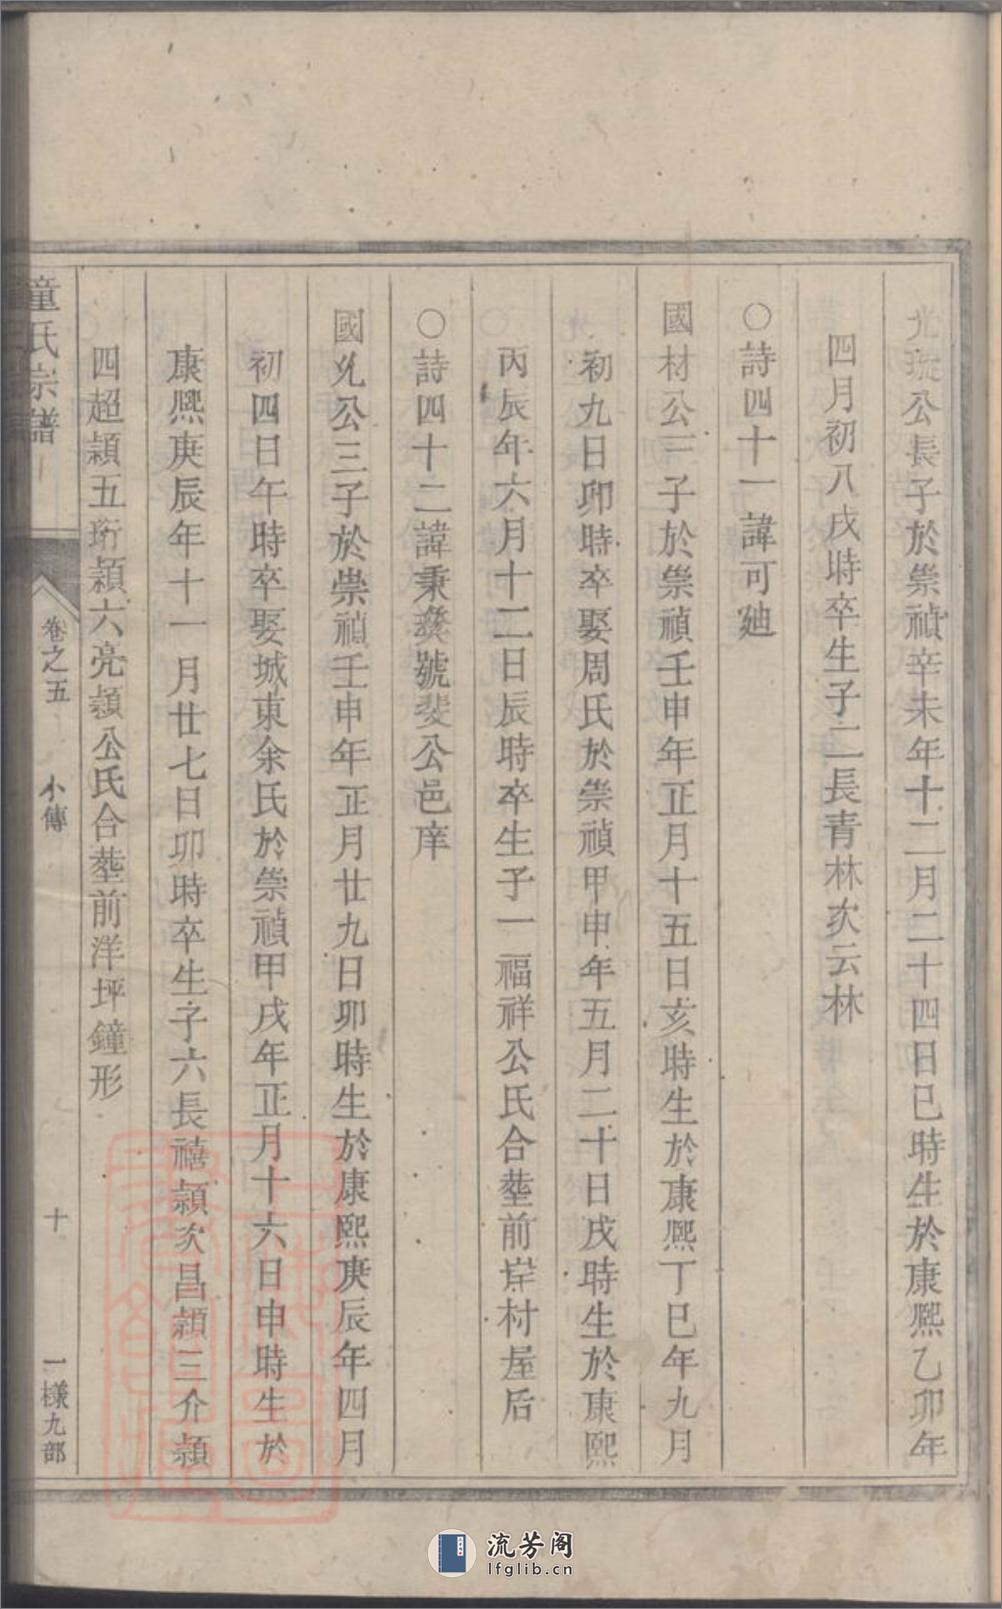 光琁公長子於崇禎辛未年十二月二十四日巳時生於康熙乙卯年
四月初八戌時卒生子二長青林次云林
〇詩四十一諱可廸
國材公二子於崇禎壬申年正月十五日亥時生於康熙丁巳年九月
初九日卯時卒娶周氏於崇禎甲申年五月二十日戌時生於康熙
丙辰年六月十二日辰時卒生子一福祥公氏合塟前岸村屋后
〇詩四十二諱秉 號斐公邑庠
國 公三子於崇禎壬申年正月廿九日卯時生於康熙庚辰年四月
初四日午時卒娶城東余氏於崇禎甲戌年正月十六日申時生於
康熙庚辰年十一月廿七日卯時卒生子六長禧穎次昌穎三介穎
四超穎五珩穎六亮穎公氏合塟前洋坪鐘形
童氏宗譜 卷之五 小傳 十 一樣九部
流芳阁
lfglib.cn